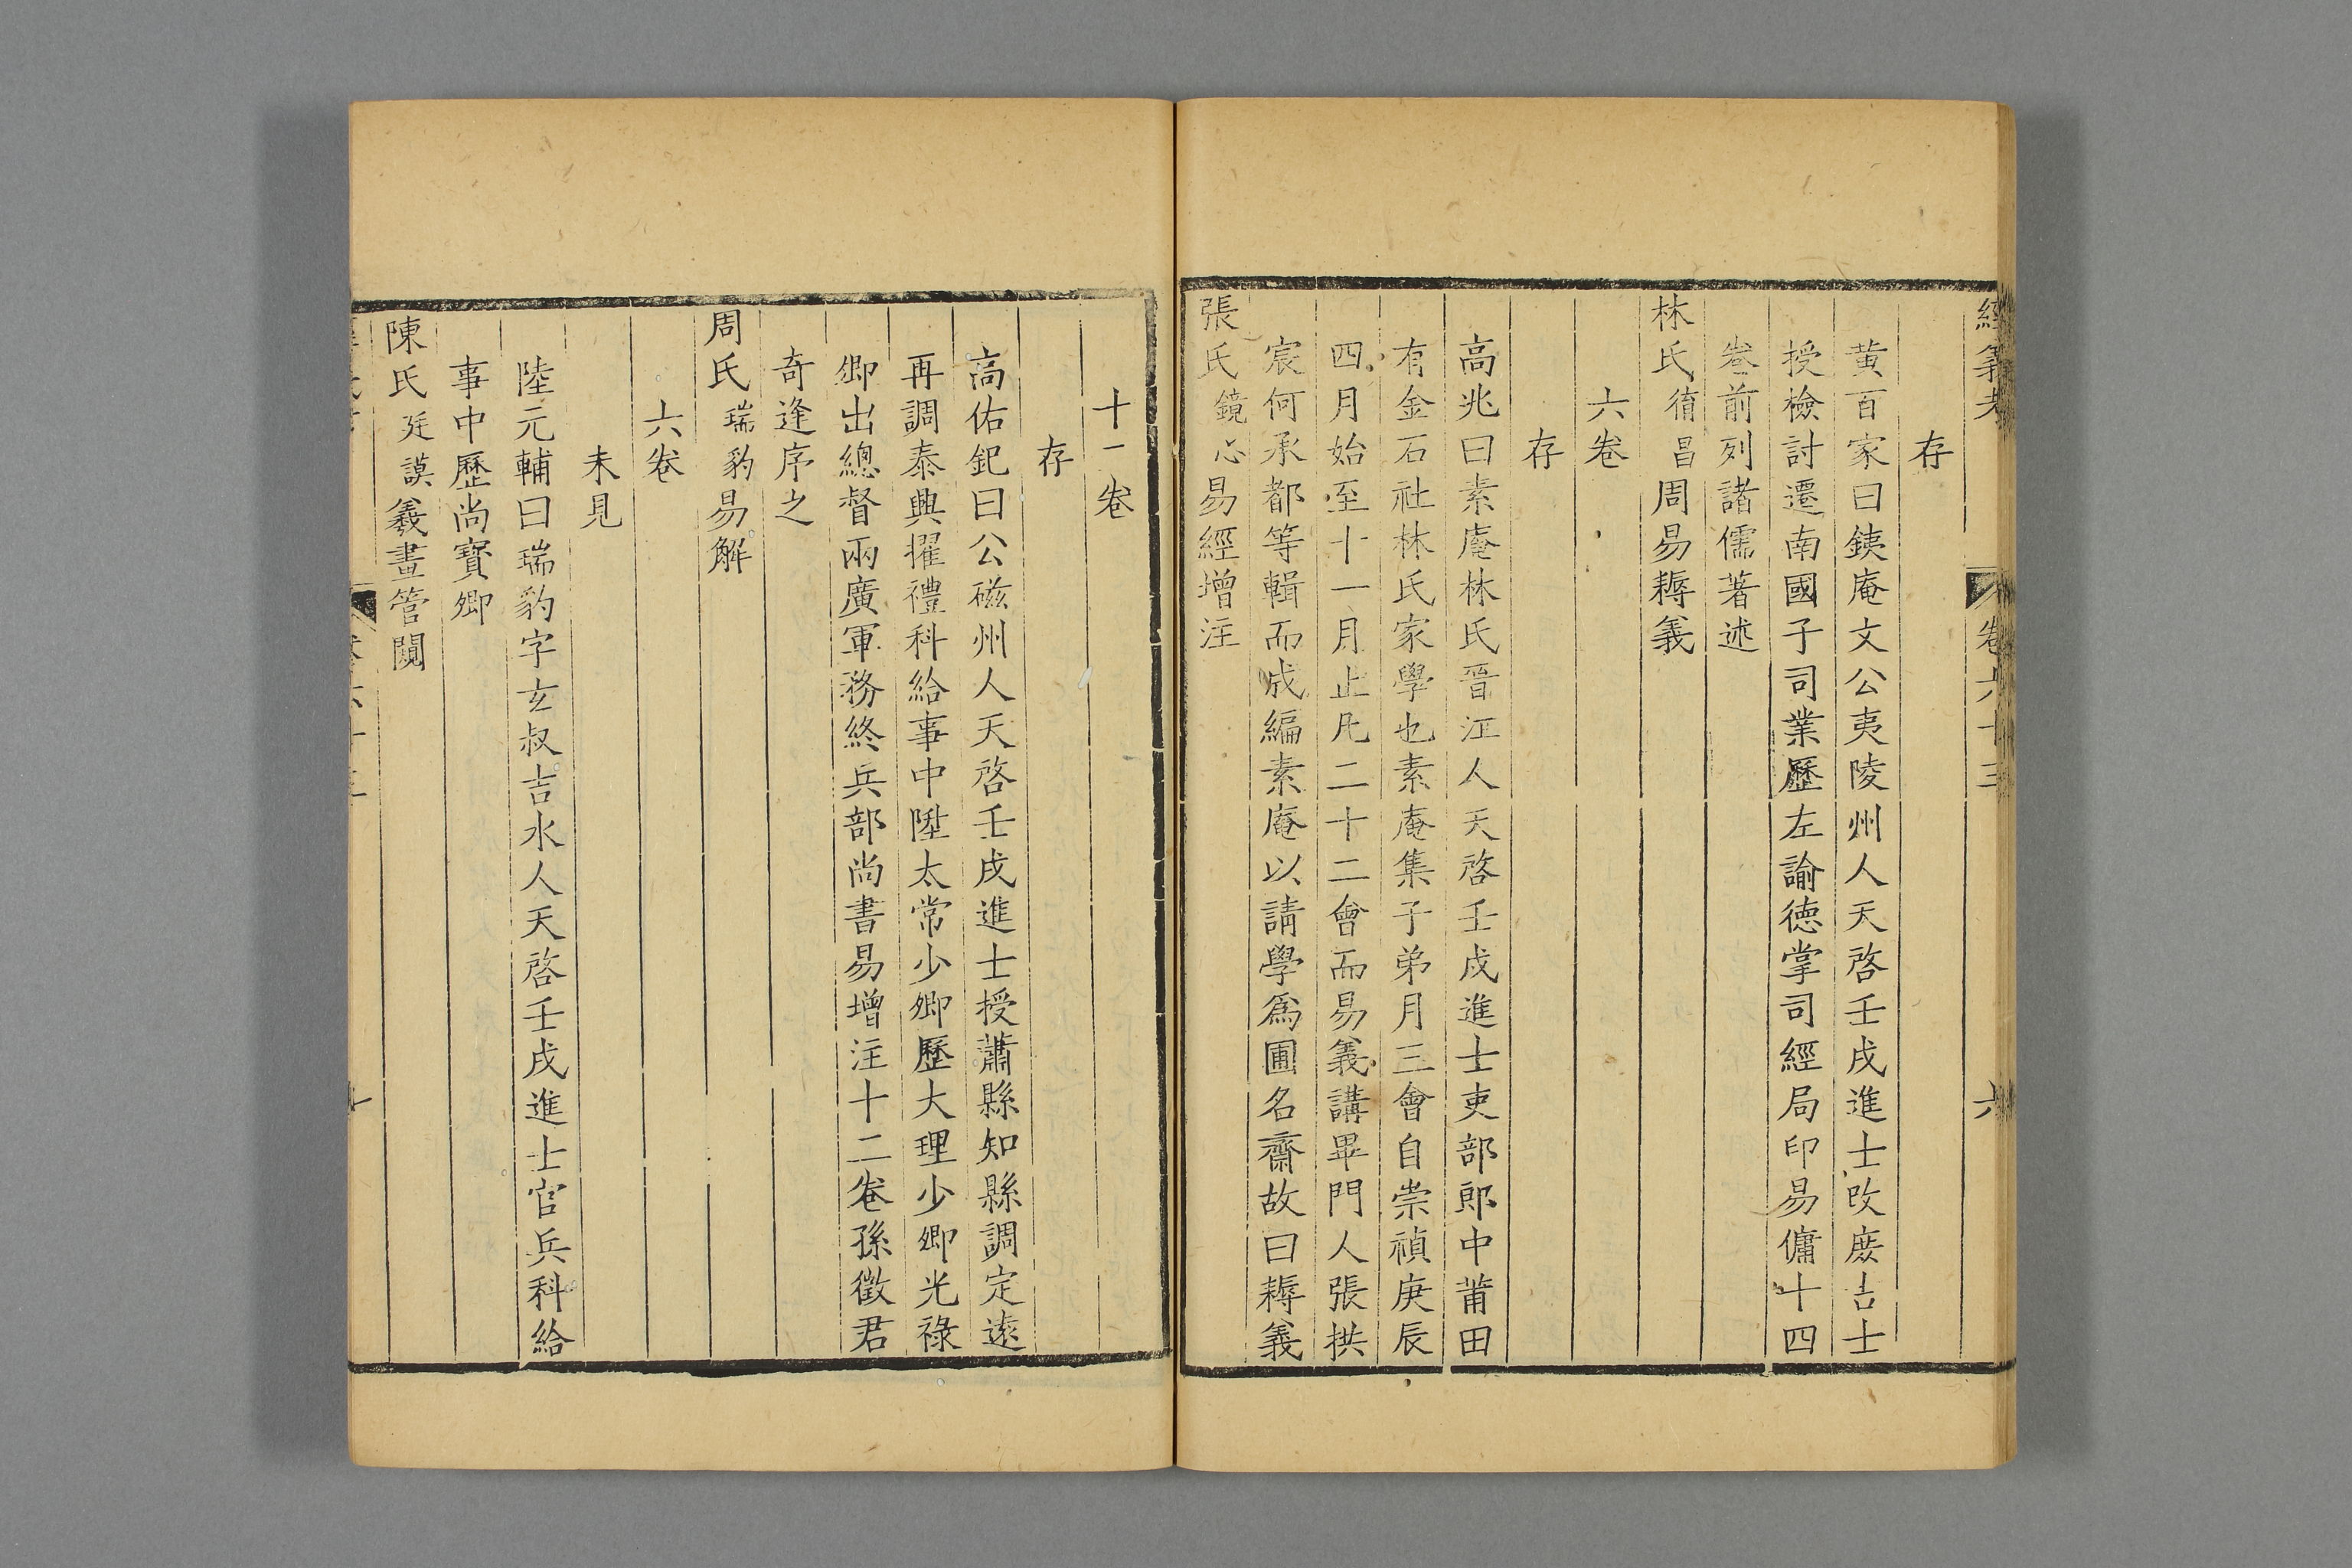 經義考　卷六十三　六
存
黄百家曰鉄庵文公夷陵州人天啓壬戌進士改庻吉士
授檢討遷南國子司業歷左諭德掌司經局印易傭十四
卷前列諸儒著述
林氏 㣧昌 周易耨義
六卷
存
高兆曰素庵林氏晉江人天啓壬戌進士吏部郎中莆田
有金石社林氏家學也素庵集子弟月三會自崇禎庚辰
四月始至十一月止凡二十二會而易義講畢門人張拱
宸何承都等輯而成編素庵以請學爲圃名齋故曰耨義
張氏 鏡心 易經增注
十一卷
存
高佑釲曰公磁州人天啓壬戌進士授蕭縣知縣調定遠
再調泰興擢禮科給事中陞太常少卿歷大理少卿光祿
卿出總督兩廣軍務終兵部尚書易增注十二卷孫徵君
奇逢序之
周氏 瑞豹 易解
六卷
未見
陸元輔曰瑞豹字玄叔吉水人天啓壬戌進士官兵科給
事中歷尚寶卿
陳氏 廷謨 羲畫管闚